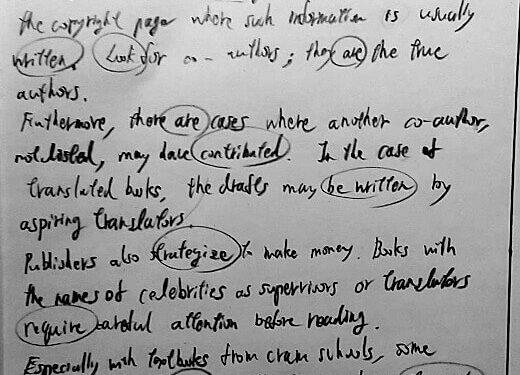 the copyright page where such information is usually
written. Look for co-authors; they are the true
authors.
Furthermore, there are cases where another co-author,
not listed, may have contributed. In the case of
translated books, the drafts may be written by
aspiring translators.
Publishers also strategize to make money. Books with
the names of celebrities as supervisors or translators
require careful attention before reading.
Especially with textbooks from cram schools, some